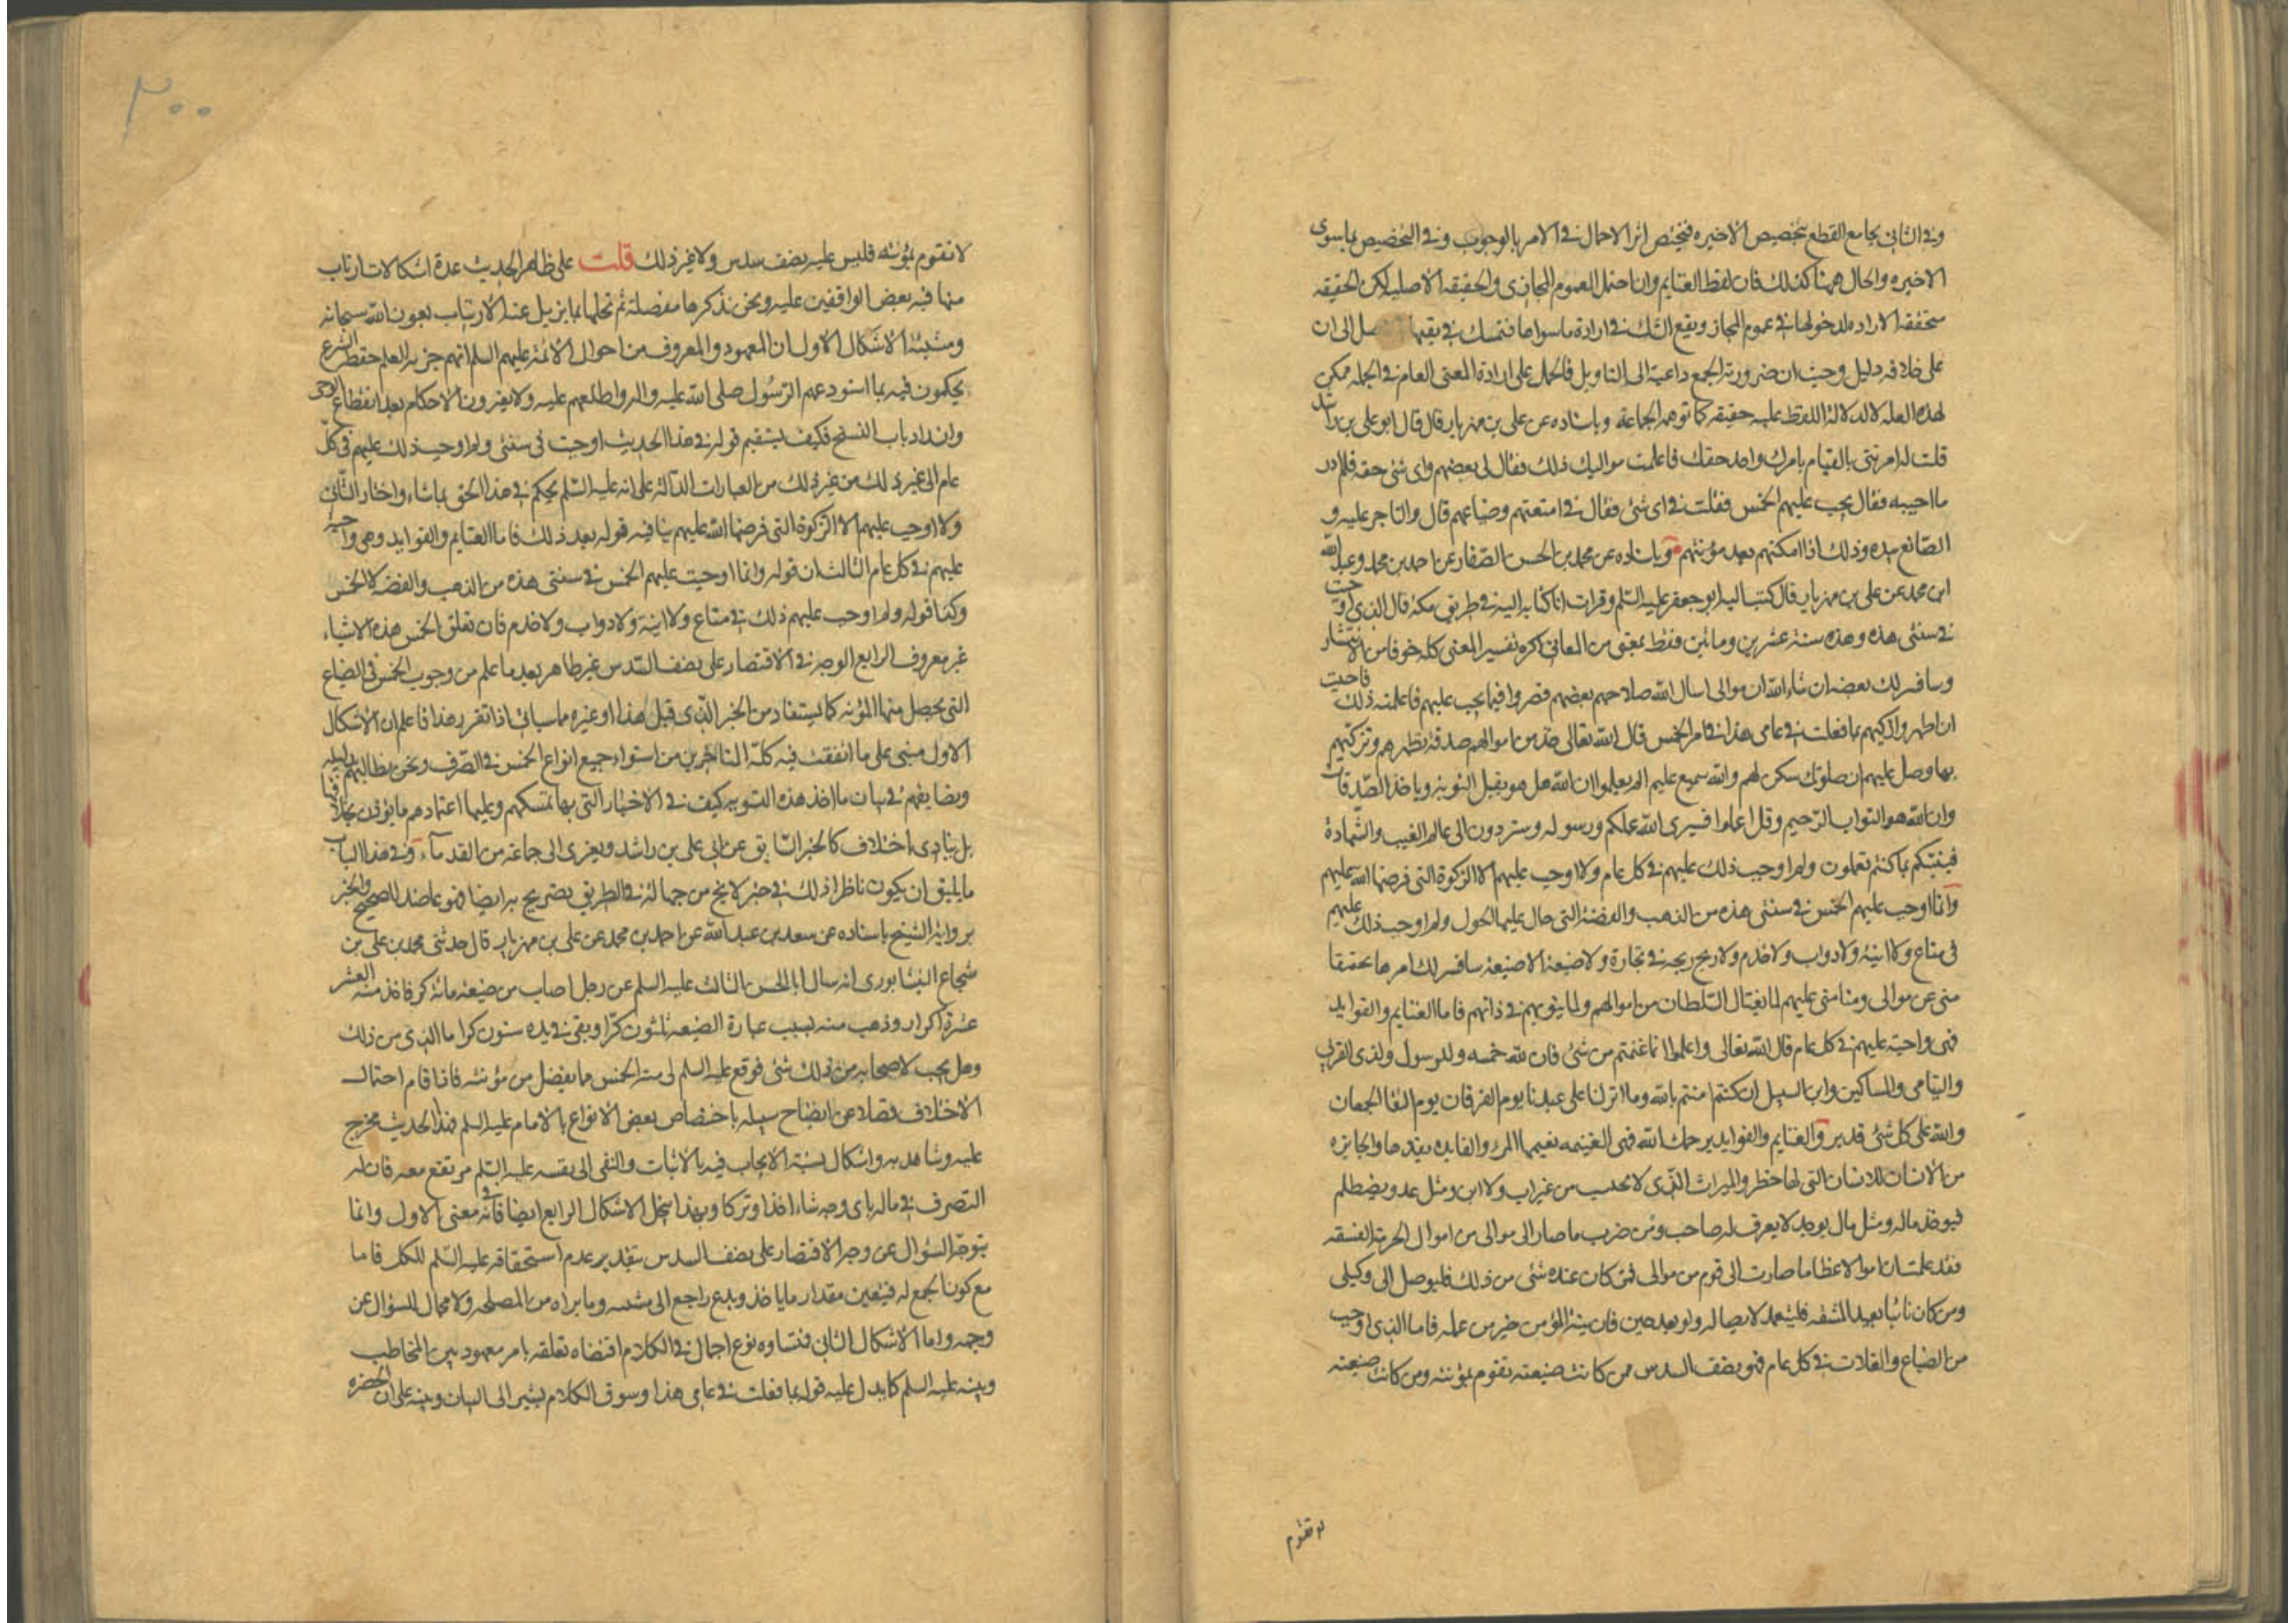 وفي الثاني بجامع القطع بتخصيص الاخيرة فيختص اثر الاحتمال في الامر بالوجوب وفي التخصيص بما سوى
الاخيره والحال ههنا كذلك فان لفظ الغنايم وان احتمل العموم المجازى والحقيقه الاصليه لكن الحقيقه
متحققه الاراده لدخولها في عموم المجاز ويقع الشك في ارادة ما سواها فتمسك في نفيها الى ان
على خلافه دليل وحيث ان ضرورة الجمع داعية الى التاويل فالحمل على ارادة المعنى العام في الجمله ممكن
لهذه العله لا لدلالة اللفظ عليه حقيقه كما توهمه الجماعة وباسناده عن على بن مهزيار قال قال ابو على بن راشد
قلت له امرتنى بالقيام بامرك واخذ حقك فاعلمت مواليك ذلك فقال لى بعضهم واى شئ حقه فلم ادر
ما اجيبه فقال يجب عليهم الخمس فقلت في اى شئ فقال في امتعتهم وضياعهم قال والتاجر عليه و
الصانع بيده وذلك اذا امكنهم بعد مؤنتهم وباسناده عن محمد بن الحسن الصفار عن احمد بن محمد وعبد الله
ابن محمد عن على بن مهزيار قال كتب اليه ابو جعفر عليه السلم وقرات انا كتابه اليه في طريق مكه قال الذى اوجبت
في سنتى هذه وهذه سنة عشرين ومائتين فقط بمعنى من المعانى اكره تفسير المعنى كله خوفا من الانتشار
وسافسر لك بعضه ان شاء الله ان موالى اسال الله صلاحهم بعضهم قصروا فيما يجب عليهم فاعلمت ذلك فاحببت
ان اطهرهم وازكيهم بما فعلت في عامى هذا في امر الخمس قال الله تعالى خذ من اموالهم صدقة تطهرهم وتزكيهم
بها وصل عليهم ان صلوتك سكن لهم والله سميع عليم الم يعلموا ان الله هو يقبل التوبة وياخذ الصدقات
وان الله هو التواب الرحيم وقل اعملوا فسيرى الله عملكم ورسوله وستردون الى عالم الغيب والشهادة
فينبئكم بما كنتم تعملون ولم اوجب ذلك عليهم في كل عام ولا اوجب عليهم الا الزكوة التى فرضها الله عليهم
وانما اوجب عليهم الخمس في سنتى هذه من الذهب والفضة التى حال عليها الحول ولم اوجب ذلك عليهم
في متاع ولا انية ولا دواب ولا خدم ولا ربح ربحه في تجارة ولا ضيعة الا ضيعة سافسر لك امرها تخفيفا
منى عن موالى ومنا منى عليهم لما يغتال السلطان من اموالهم ولما ينوبهم في ذاتهم فاما الغنايم والفوايد
فهى واجبة عليهم في كل عام قال الله تعالى واعلموا انما غنمتم من شئ فان لله خمسه وللرسول ولذى القربى
واليتامى والمساكين وابن السبيل ان كنتم امنتم بالله وما انزلنا على عبدنا يوم الفرقان يوم التقا الجمعان
والله على كل شئ قدير والغنايم والفوايد يرحمك الله فهى الغنيمه يغنمها المرء والفايده يفيدها والجايزه
من الانسان للانسان التى لها خطر والميراث الذى لا يحتسب من غير اب ولا ابن ومثل عدو يصطلم
فيوخذ ماله ومثل مال يوجد لا يعرف له صاحب ومن ضرب ما صار الى موالى من اموال الخرمية الفسقه
فقد علمت ان اموالا عظاما صارت الى قوم من موالى فمن كان عنده شئ من ذلك فليوصل الى وكيلى
ومن كان نائيا بعيد المشقه فليتعمد لايصاله ولو بعد حين فان نية المؤمن خير من عمله فاما الذى اوجب
من الضياع والغلات في كل عام فهو نصف السدس ممن كانت ضيعته تقوم بمؤنته ومن كانت ضيعته
لا تقوم
لا تقوم بمؤنته فليس عليه نصف سدس ولا غير ذلك قلت على ظاهر الحديث عدة اشكالات ارتاب
منها فيه بعض الواقفين عليه ونحن نذكرها مفصلة ثم نحلها بما يزيل عنه الارتياب بعون الله سبحانه
ومشيته الاشكال الاول ان المعهود والمعروف من احوال الائمة عليهم السلم انهم خزنه العلم حفظة الشرع
يحكمون فيه بما استودعهم الرسول صلى الله عليه واله واطلعهم عليه ولا يغيرون الاحكام بعد انقطاع الوحى
وانسداد باب النسخ فكيف يستقيم قوله في هذا الحديث اوجبت في سنتى ولم اوجب ذلك عليهم في كل
عام الى غير ذلك من العبارات الدالة على انه عليه السلم يحكم في هذا الحق بما شاء واختار الثانى
ولا اوجب عليهم الا الزكوة التى فرضها الله عليهم ينافيه قوله بعد ذلك فاما الغنايم والفوايد فهى واجبة
عليهم في كل عام الثالث ان قوله وانما اوجبت عليهم الخمس في سنتى هذه من الذهب والفضه لا الخمس
وكذا قوله ولم اوجب عليهم ذلك في متاع ولا انية ولا دواب ولا خدم فان تعلق الخمس هذه الاشياء
غير معروف الرابع الوجه في الاقتصار على نصف السدس غير ظاهر بعد ما علم من وجوب الخمس في الضياع
التى يحصل منها المؤنه كما يستفاد من الخبر الذى قبل هذا وغيره مما سياتى اذا تقرر هذا فاعلم ان الاشكال
الاول مبنى على ما اتفقت فيه كلمة المتاخرين من استواء جميع انواع الخمس في المصرف ونحن نطالبهم بدليله
ونضايقهم في بيان ماخذ هذه التسوية كيف وفي الاخبار التى بها تمسكهم وعليها اعتمادهم ما يؤذن بخلافها
بل ينادى بالاختلاف كالخبر السابق عن ابى على بن راشد ويعزى الى جماعة من القدماء وفي هذا الباب
ما يليق ان يكون ناظرا الى ذلك وفي خبر لا يخ من جهالة في الطريق تصريح به ايضا فهو عاضد للصحيح والخبر
برواية الشيخ باسناده عن سعد بن عبد الله عن احمد بن محمد عن على بن مهزيار قال حدثنى محمد بن على بن
شجاع النيشابورى انه سال ابا الحسن الثالث عليه السلم عن رجل اصاب من ضيعته مائة كر فاخذ منه العشر
عشرة اكرار وذهب منه بسبب عمارة الضيعه ثلثون كرا وبقى في يده ستون كرا ما الذى من ذلك
وهل يجب لاصحابه من ذلك شئ فوقع عليه السلم لى منه الخمس مما يفضل من مؤنته فاذا قام احتمال
الاختلاف فضلا عن ايضاح سبيله باختصاص بعض الانواع بالامام عليه السلم فهذا الحديث مخرج
عليه وشاهد به واشكال نسبة الايجاب فيه بالاثبات والنفى الى نفسه عليه السلم مرتفع معه فان له
التصرف في ماله باى وجه شاء اخذا وتركا وبهذا ينحل الاشكال الرابع ايضا فانه في معنى الاول وانما
يتوجه السؤال عن وجه الاقتصار على نصف السدس بتقدير عدم استحقاقه عليه السلم للكل فاما
مع كون الجمع له فتعيين مقدار ما ياخذ ويدع راجع الى مشيته وما يراه من المصلحه ولا مجال للسؤال عن
وجهه واما الاشكال الثانى فمنشاؤه نوع اجمال في الكلام اقتضاه تعلقه بامر معهود بين المخاطب
وبينه عليه السلم كما يدل عليه قوله بما فعلت في عامى هذا وسوق الكلام يشير الى البيان وينبه على ان الحصر
٣٠٠